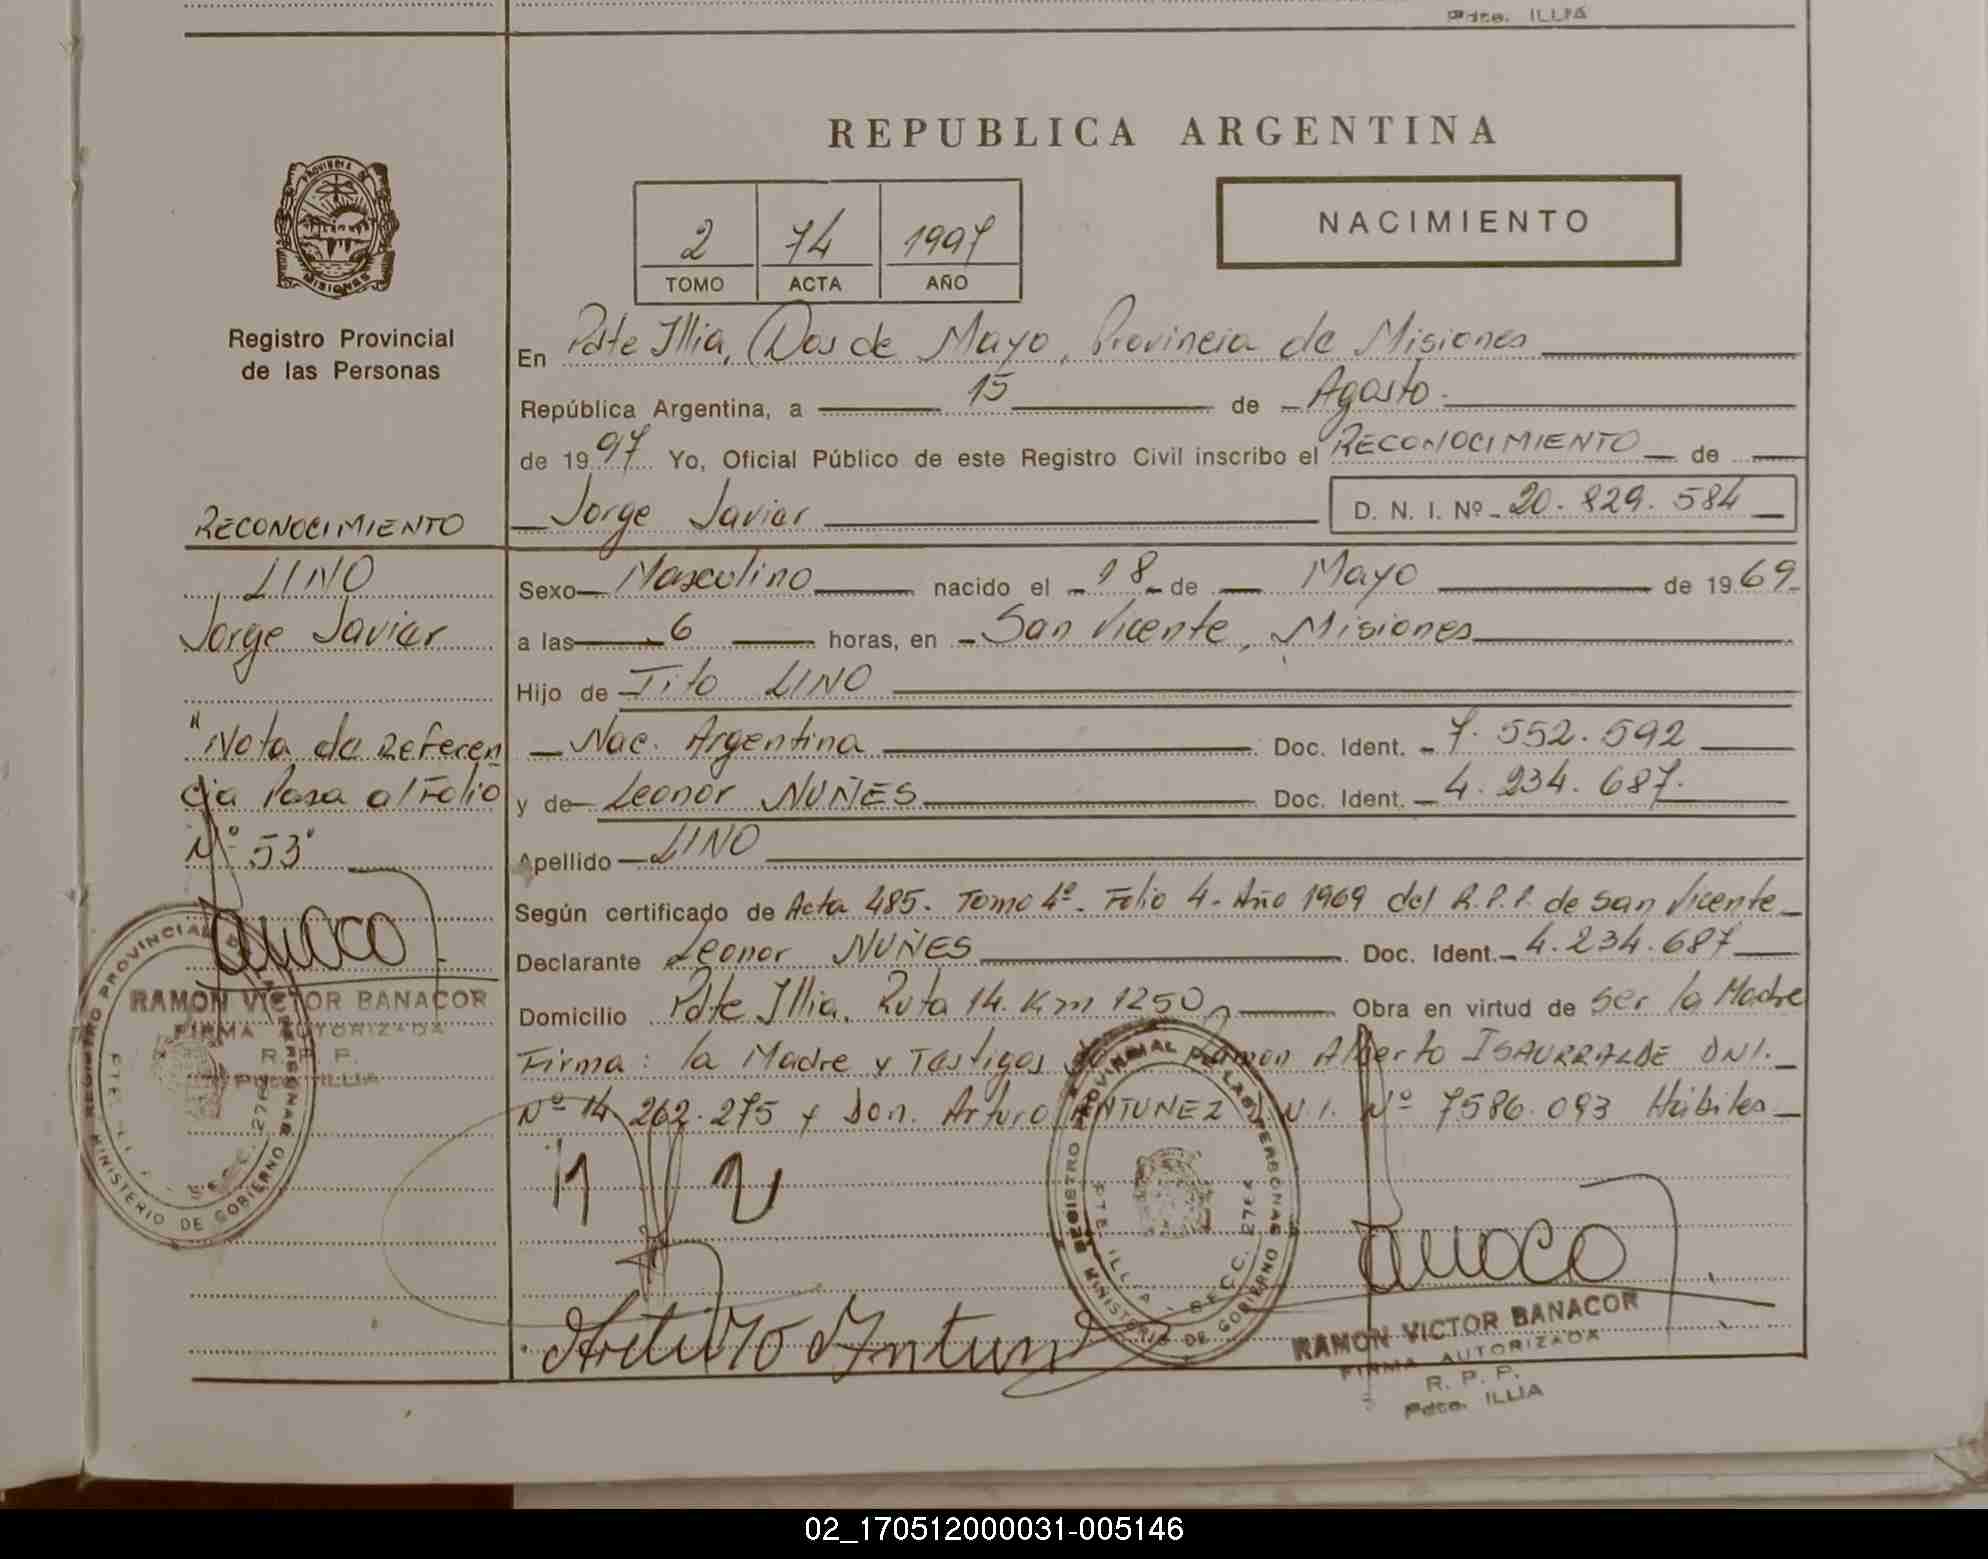 Pdte. ILLIA
REPUBLICA ARGENTINA
NACIMIENTO
2 74 1997
TOMO ACTA AÑO
PROVINCIA DE
MISIONES
Registro Provincial
de las Personas
En Pdte Illia, Dos de Mayo, Provincia de Misiones
República Argentina, a 15 de Agosto.
de 1997 Yo, Oficial Público de este Registro Civil inscribo el RECONOCIMIENTO de
Jorge Javier D. N. I. Nº 20.829.584
RECONOCIMIENTO
LINO
Jorge Javier
"Nota de Referen
cia Pasa al Folio
Nº 53"
Sexo Masculino nacido el 18 de Mayo de 1969
a las 6 horas, en San Vicente, Misiones
Hijo de Tito LINO
Nac. Argentina Doc. Ident. 7.552.592
y de Leonor NUÑES Doc. Ident. 4.234.687.
Apellido LINO
Según certificado de Acta 485. Tomo 4º. Folio 4. Año 1969 del R.P.P. de San Vicente
Declarante Leonor NUÑES Doc. Ident. 4.234.687
Domicilio Pdte Illia, Ruta 14. Km 1250 Obra en virtud de Ser la Madre
Firma: la Madre y Testigos Ramon Alberto ISAURRALDE DNI.
Nº 14.262.275 y Don. Arturo ANTUNEZ D.N.I. Nº 7586.093 Hábiles
REGISTRO PROVINCIAL DE LAS PERSONAS
MINISTERIO DE GOBIERNO
RAMON VICTOR BANACOR
FIRMA AUTORIZADA
R. P. P.
Pdte. ILLIA
Arturo Antun
REGISTRO PROVINCIAL DE LAS PERSONAS
PTE. ILLIA - SECC. 276
MINISTERIO DE GOBIERNO
RAMON VICTOR BANACOR
FIRMA AUTORIZADA
R. P. P.
Pdte. ILLIA
02_170512000031-005146